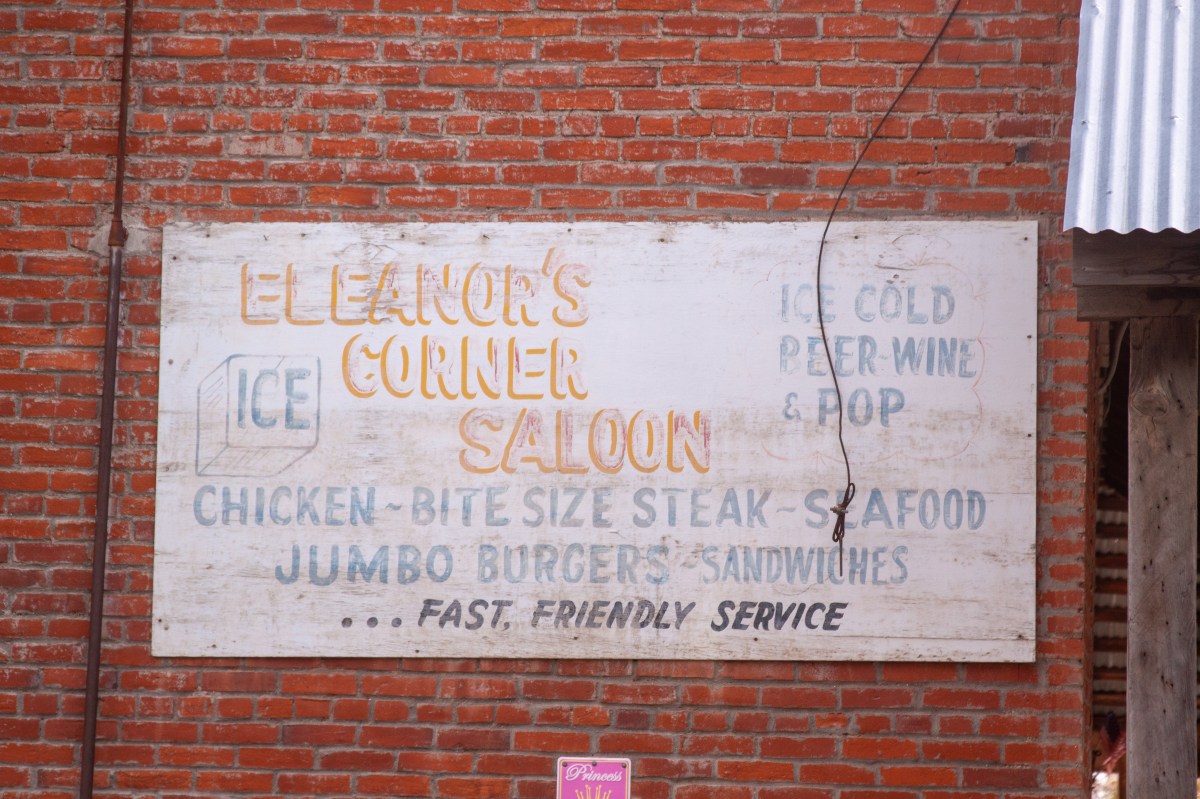 ELEANOR'S
CORNER
SALOON
ICE
ICE COLD
BEER~WINE
& POP
CHICKEN~BITE SIZE STEAK~SEAFOOD
JUMBO BURGERS~SANDWICHES
...FAST, FRIENDLY SERVICE
Princess